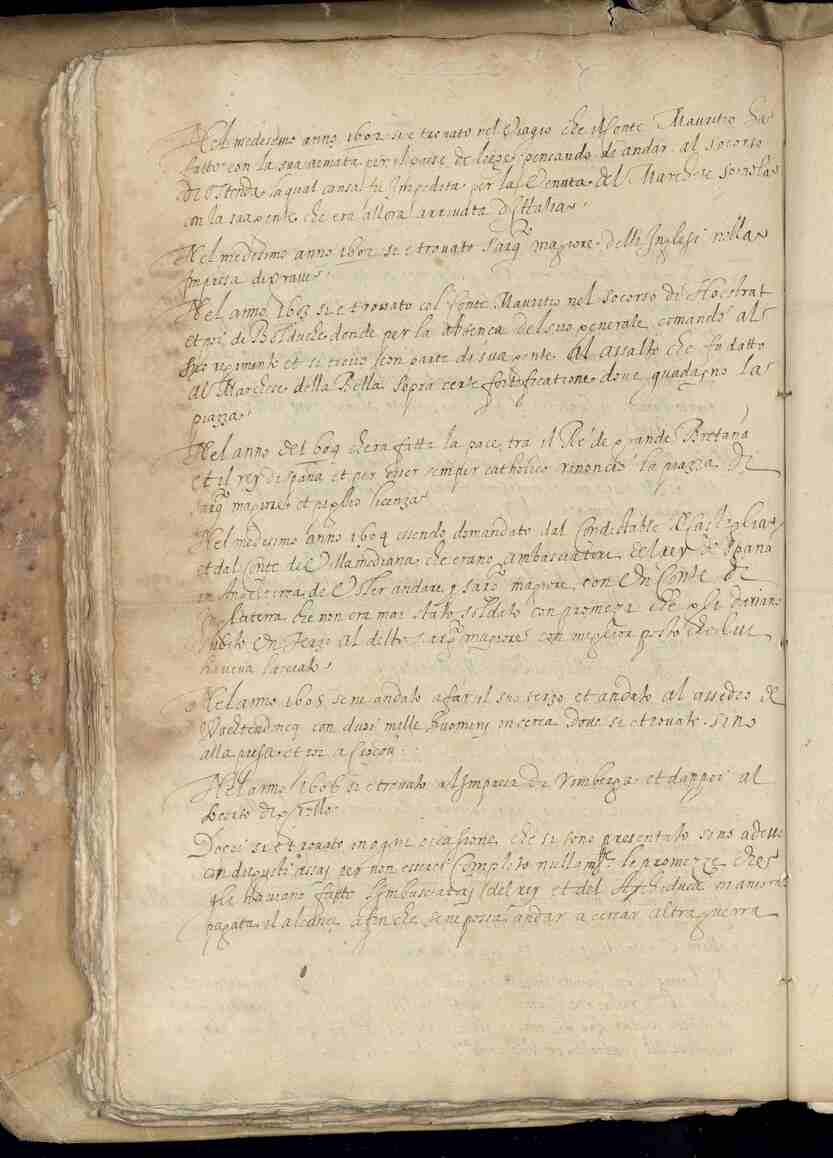 Nel medesimo anno 1602 si e trovato nel Viagio che il Conte Mauritio ha
fatto con la sua armata per il paese de leige pensando de andar al socorso
de Ostenda laqual cansa fu Impedita per la Venuta del Marchese Spinola
con la sua gente che era allora arrivata d'Italia.
Nel medesimo anno 1602 si e trovato sarg.r magiore delli Inglesi nella
Impresa de Grave.
Nel anno 1603 si e trovato col Conte Mauritio nel socorso di Hocstrat
et poi de Bolduche donde per la absenca del suo generale comando al
suo regimento et si trovo con parte di sua gente al assalto che fu datto
al Marchese della Bella sopra certe fortificatione dove guadagno la
piazza.
Nel anno de 1604 ch'era fatta la pace tra il Re de grande Bretana
et il rey di spana et per esser semper catholico renoncio la piazza de
sarg.r magiore et piglio licenza.
Nel medesimo anno 1604 essendo domandato dal Condestable de Castiglia
et dal Conte de Villamediana che erano ambasciatori del rey de Spana
in Angleterra de Voler andare p sarg.r magiore con Un Conte de
Ingleterra che non era mai stato soldato con promessa che gli dariano
subito Un terzo al detto sarg.r magiore con meglior posto che lui
haveva lasciato.
Nel anno 1605 se ne andato a far il suo terzo et andato al assedio de
Wachtendincq con dusi mille huomeny in cerca dove si e trovato sino
alla presa et poi a Cracou.
Nel anno 1606 si e trovato al Impresa de Rimberga et dappoi al
socorso de Grollo.
Dopoi si e trovato in ogni occasione che si sono presentato sino adesso
con disgusti assai per non esserci Complito nullam.te le promezze che
gli haviono fatto l'Imbasciadori del rey et del Archiduca
pagata il aldonca afin che se ne possa andar a cercar altra guerra